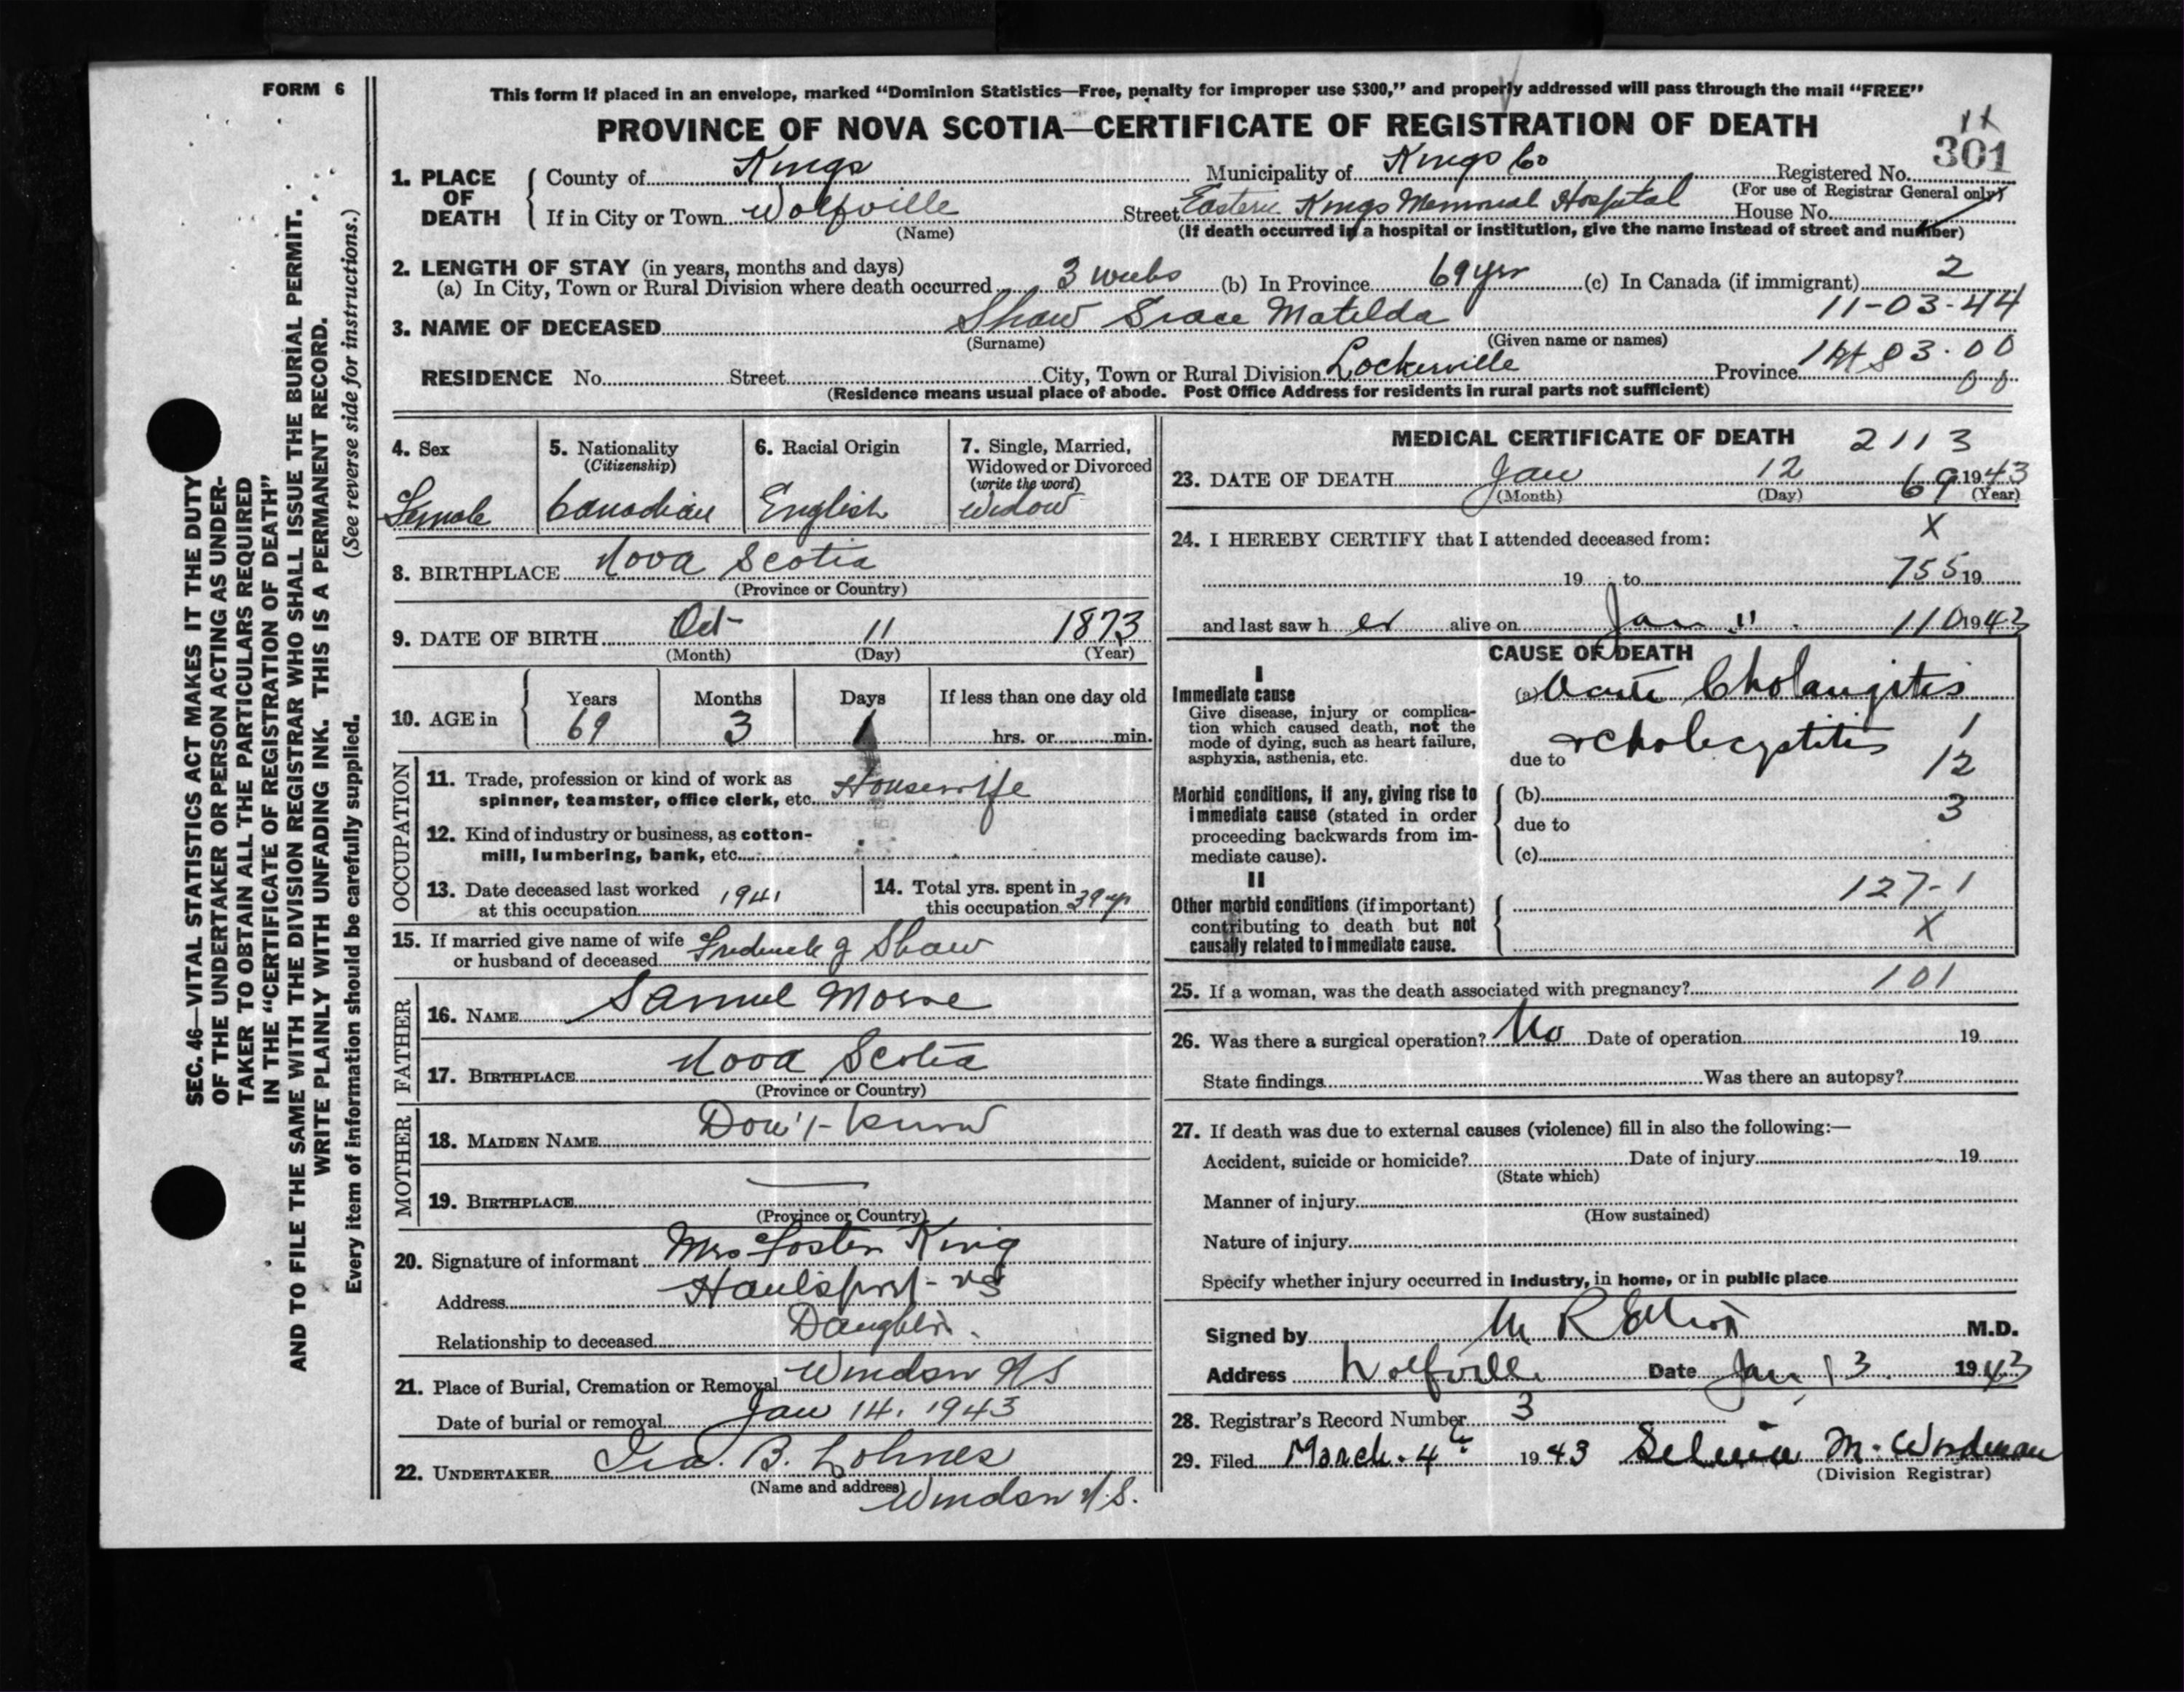 FORM 6
This form if placed in an envelope, marked "Dominion Statistics—Free, penalty for improper use $300," and properly addressed will pass through the mail "FREE"
PROVINCE OF NOVA SCOTIA—CERTIFICATE OF REGISTRATION OF DEATH
301
1. PLACE OF DEATH
County of Kings Municipality of Kings Co Registered No.
(For use of Registrar General only)
If in City or Town Wolfville Street Eastern Kings Memorial Hospital House No.
(Name) (If death occurred in a hospital or institution, give the name instead of street and number)
2. LENGTH OF STAY (in years, months and days)
(a) In City, Town or Rural Division where death occurred 3 weeks (b) In Province 69 yrs (c) In Canada (if immigrant) 2
3. NAME OF DECEASED Shaw Grace Matilda 11-03-44
(Surname) (Given name or names)
RESIDENCE No. Street City, Town or Rural Division Province 03.00
00
(Residence means usual place of abode. Post Office Address for residents in rural parts not sufficient)
4. Sex 5. Nationality (Citizenship) 6. Racial Origin 7. Single, Married, Widowed or Divorced (write the word)
Female Canadian English Widow
8. BIRTHPLACE Nova Scotia
(Province or Country)
9. DATE OF BIRTH Oct 11 1873
(Month) (Day) (Year)
10. AGE in Years Months Days If less than one day old
69 3 1 hrs. or min.
OCCUPATION
11. Trade, profession or kind of work as
spinner, teamster, office clerk, etc. Housewife
12. Kind of industry or business, as cotton-
mill, lumbering, bank, etc.
13. Date deceased last worked at this occupation 1941 14. Total yrs. spent in this occupation 39 yr
15. If married give name of wife
or husband of deceased Frederick J Shaw
FATHER
16. NAME Samuel Morse
17. BIRTHPLACE Nova Scotia
(Province or Country)
MOTHER
18. MAIDEN NAME Don't know
19. BIRTHPLACE —
(Province or Country)
20. Signature of informant Mrs Foster King
Address Hantsport - NS
Relationship to deceased Daughter.
21. Place of Burial, Cremation or Removal Windsor N S
Date of burial or removal Jan 14, 1943
22. UNDERTAKER Ira. B. Lohnes
(Name and address) Windsor N.S.
MEDICAL CERTIFICATE OF DEATH 2113
23. DATE OF DEATH Jan 12 69 1943
(Month) (Day) (Year)
X
24. I HEREBY CERTIFY that I attended deceased from:
19 to 755 19
and last saw h er alive on Jan 11 110 1943
CAUSE OF DEATH
I
Immediate cause
Give disease, injury or complica-
tion which caused death, not the
mode of dying, such as heart failure,
asphyxia, asthenia, etc.
(a) Acute Cholangitis
due to & Cholecystitis 1
12
Morbid conditions, if any, giving rise to
immediate cause (stated in order
proceeding backwards from im-
mediate cause).
(b)
due to 3
(c)
II
Other morbid conditions (if important)
contributing to death but not
causally related to immediate cause.
127-1
X
25. If a woman, was the death associated with pregnancy? 101
26. Was there a surgical operation? No Date of operation 19
State findings Was there an autopsy?
27. If death was due to external causes (violence) fill in also the following:—
Accident, suicide or homicide? Date of injury 19
(State which)
Manner of injury
(How sustained)
Nature of injury
Specify whether injury occurred in industry, in home, or in public place
Signed by M R Elliott M.D.
Address Wolfville Date Jan 13 1943
28. Registrar's Record Number 3
29. Filed March 4th 1943 M. Woodman
(Division Registrar)
SEC. 46—VITAL STATISTICS ACT MAKES IT THE DUTY
OF THE UNDERTAKER OR PERSON ACTING AS UNDER-
TAKER TO OBTAIN ALL THE PARTICULARS REQUIRED
IN THE "CERTIFICATE OF REGISTRATION OF DEATH"
AND TO FILE THE SAME WITH THE DIVISION REGISTRAR WHO SHALL ISSUE THE BURIAL PERMIT.
WRITE PLAINLY WITH UNFADING INK. THIS IS A PERMANENT RECORD.
Every item of information should be carefully supplied. (See reverse side for instructions.)